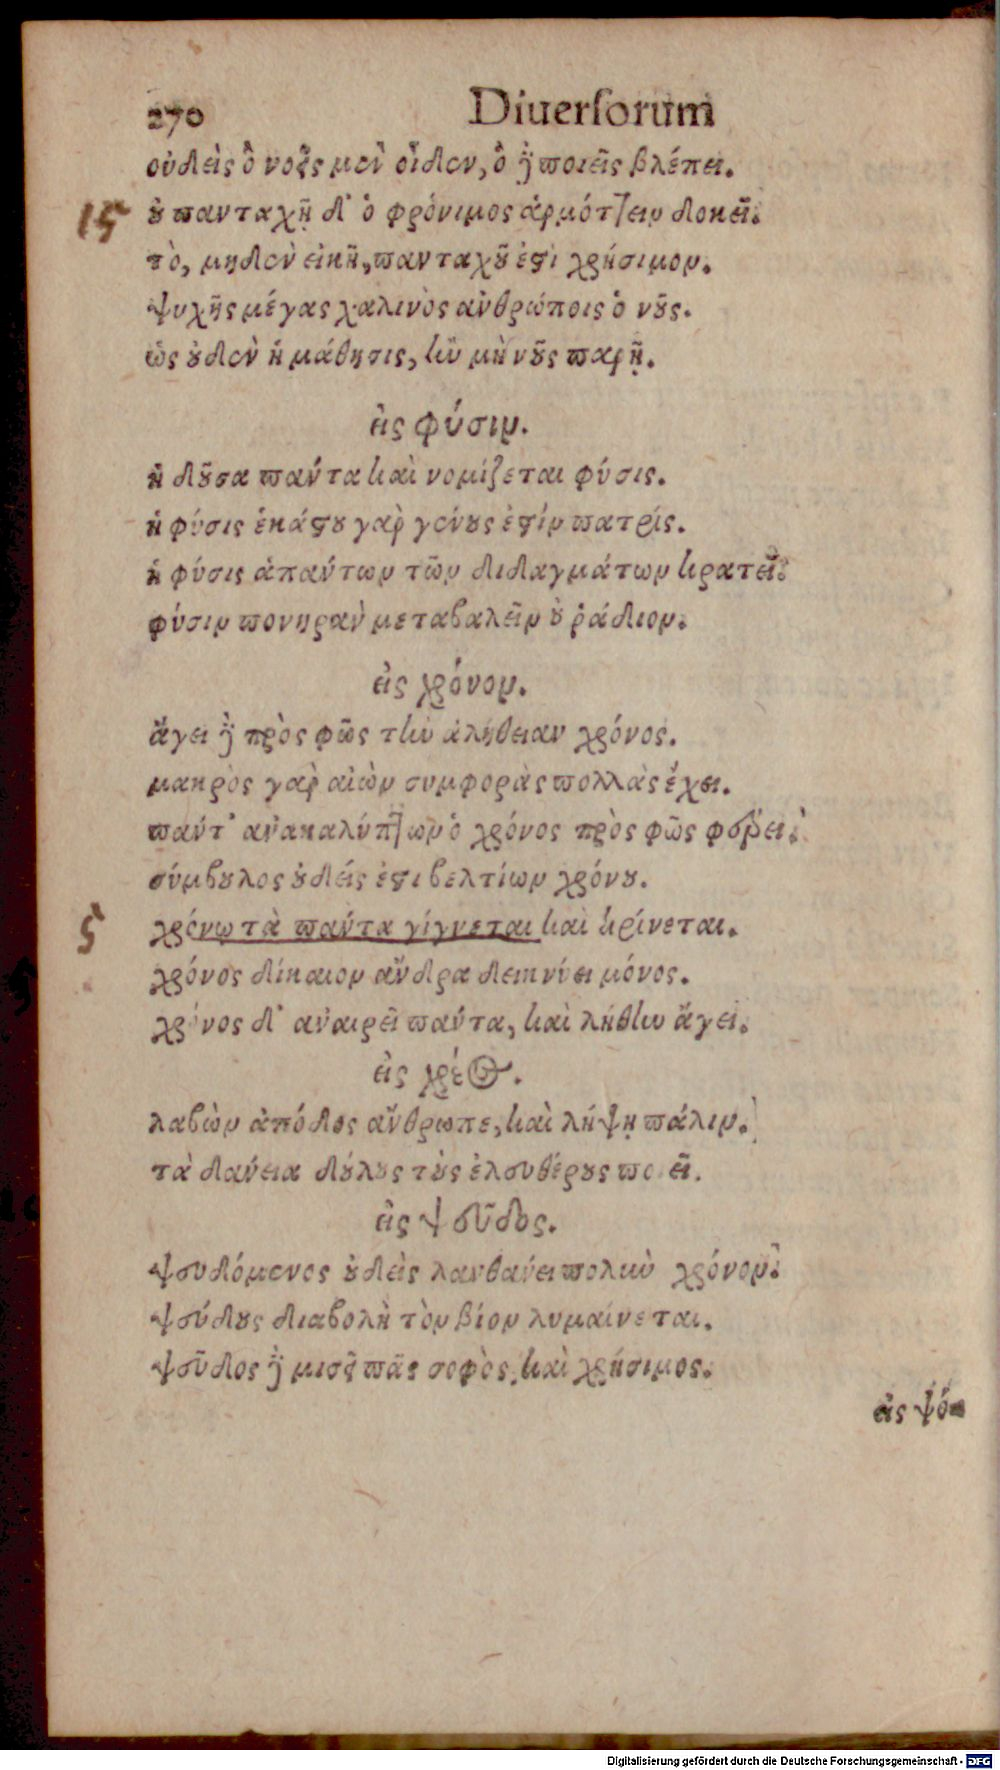 270 Diuersorum
οὐδεὶς ὃ νοεῖς μὲν οἶδεν, ὃ δὲ ποιεῖς βλέπει.
15 οὐ πανταχῇ δ' ὁ φρόνιμος ἁρμόττειν δοκεῖ.
τὸ, μηδὲν εἰκῆ, πανταχοῦ ἐστι χρήσιμον.
ψυχῆς μέγας χαλινὸς ἀνθρώποις ὁ νοῦς.
ὡς οὐδὲν ἡ μάθησις, ἢν μὴ νοῦς παρῇ.
εἰς φύσιν.
ἡ δοῦσα πάντα καὶ νομίζεται φύσις.
ἡ φύσις ἑκάστου γὰρ γένους ἐστίν πατρίς.
ἡ φύσις ἁπάντων τῶν διδαγμάτων κρατεῖ.
φύσιν πονηρὰν μεταβαλεῖν οὐ ῥάδιον.
εἰς χρόνον.
ἄγει δὲ πρὸς φῶς τὴν ἀλήθειαν χρόνος.
μακρὸς γὰρ αἰὼν συμφορὰς πολλὰς ἔχει.
πάντ' ἀνακαλύπτων ὁ χρόνος πρὸς φῶς φέρει.
σύμβουλος οὐδείς ἐστι βελτίων χρόνου.
5 χρόνῳ τὰ πάντα γίγνεται καὶ κρίνεται.
χρόνος δίκαιον ἄνδρα δεικνύει μόνος.
χρόνος δ' ἀναιρεῖ πάντα, καὶ λήθην ἄγει.
εἰς χρέος.
λαβὼν ἀπόδος ἄνθρωπε, καὶ λήψῃ πάλιν.
τὰ δάνεια δούλους τοὺς ἐλευθέρους ποιεῖ.
εἰς ψεῦδος.
ψευδόμενος οὐδεὶς λανθάνει πολὺν χρόνον.
ψεύδους διαβολὴ τὸν βίον λυμαίνεται.
ψεῦδος δὲ μισεῖ πᾶς σοφὸς, καὶ χρήσιμος.
εἰς ψό-
Digitalisierung gefördert durch die Deutsche Forschungsgemeinschaft - DFG